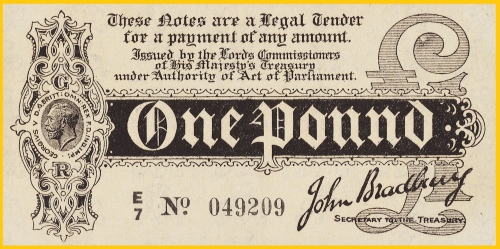 These Notes are a Legal Tender
for a payment of any amount.
Issued by the Lords Commissioners
of His Majesty's Treasury
under Authority of Act of Parliament.
£
G
R
One Pound
E
7
No. 049209
John Bradbury
SECRETARY TO THE TREASURY.